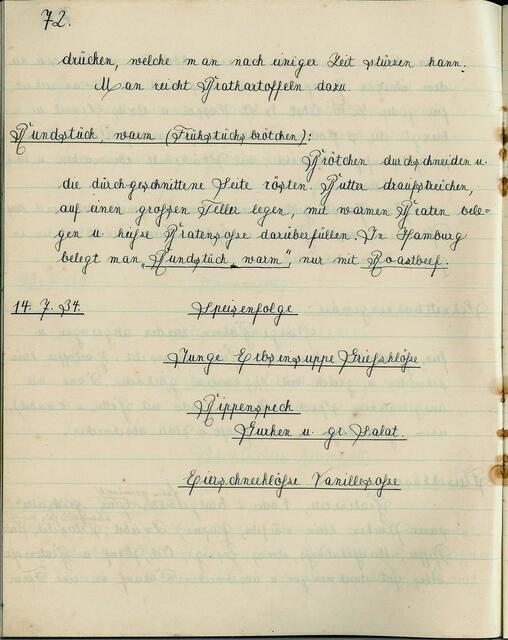 72.
drücken, welche man nach einiger Zeit stürzen kann.
Man reicht Bratkartoffeln dazu.
Rundstück, warm (Frühstücksbrötchen):
Brötchen durchschneiden u.
die durchgeschnittene Seite rösten. Butta draufstreichen,
auf einen grossen Teller legen, mit warmen Braten bele=
gen u heisse Bratensosse darüberfüllen. In Hamburg
belegt man „Rundstück warm", nur mit Roastbeef.
14. 7. 34. Speisenfolge
Junge Erbsensuppe Griefsklöße
Rippenspeck
Gurken u. gr. Salat.
Eierschneeklöße Vanillesosse